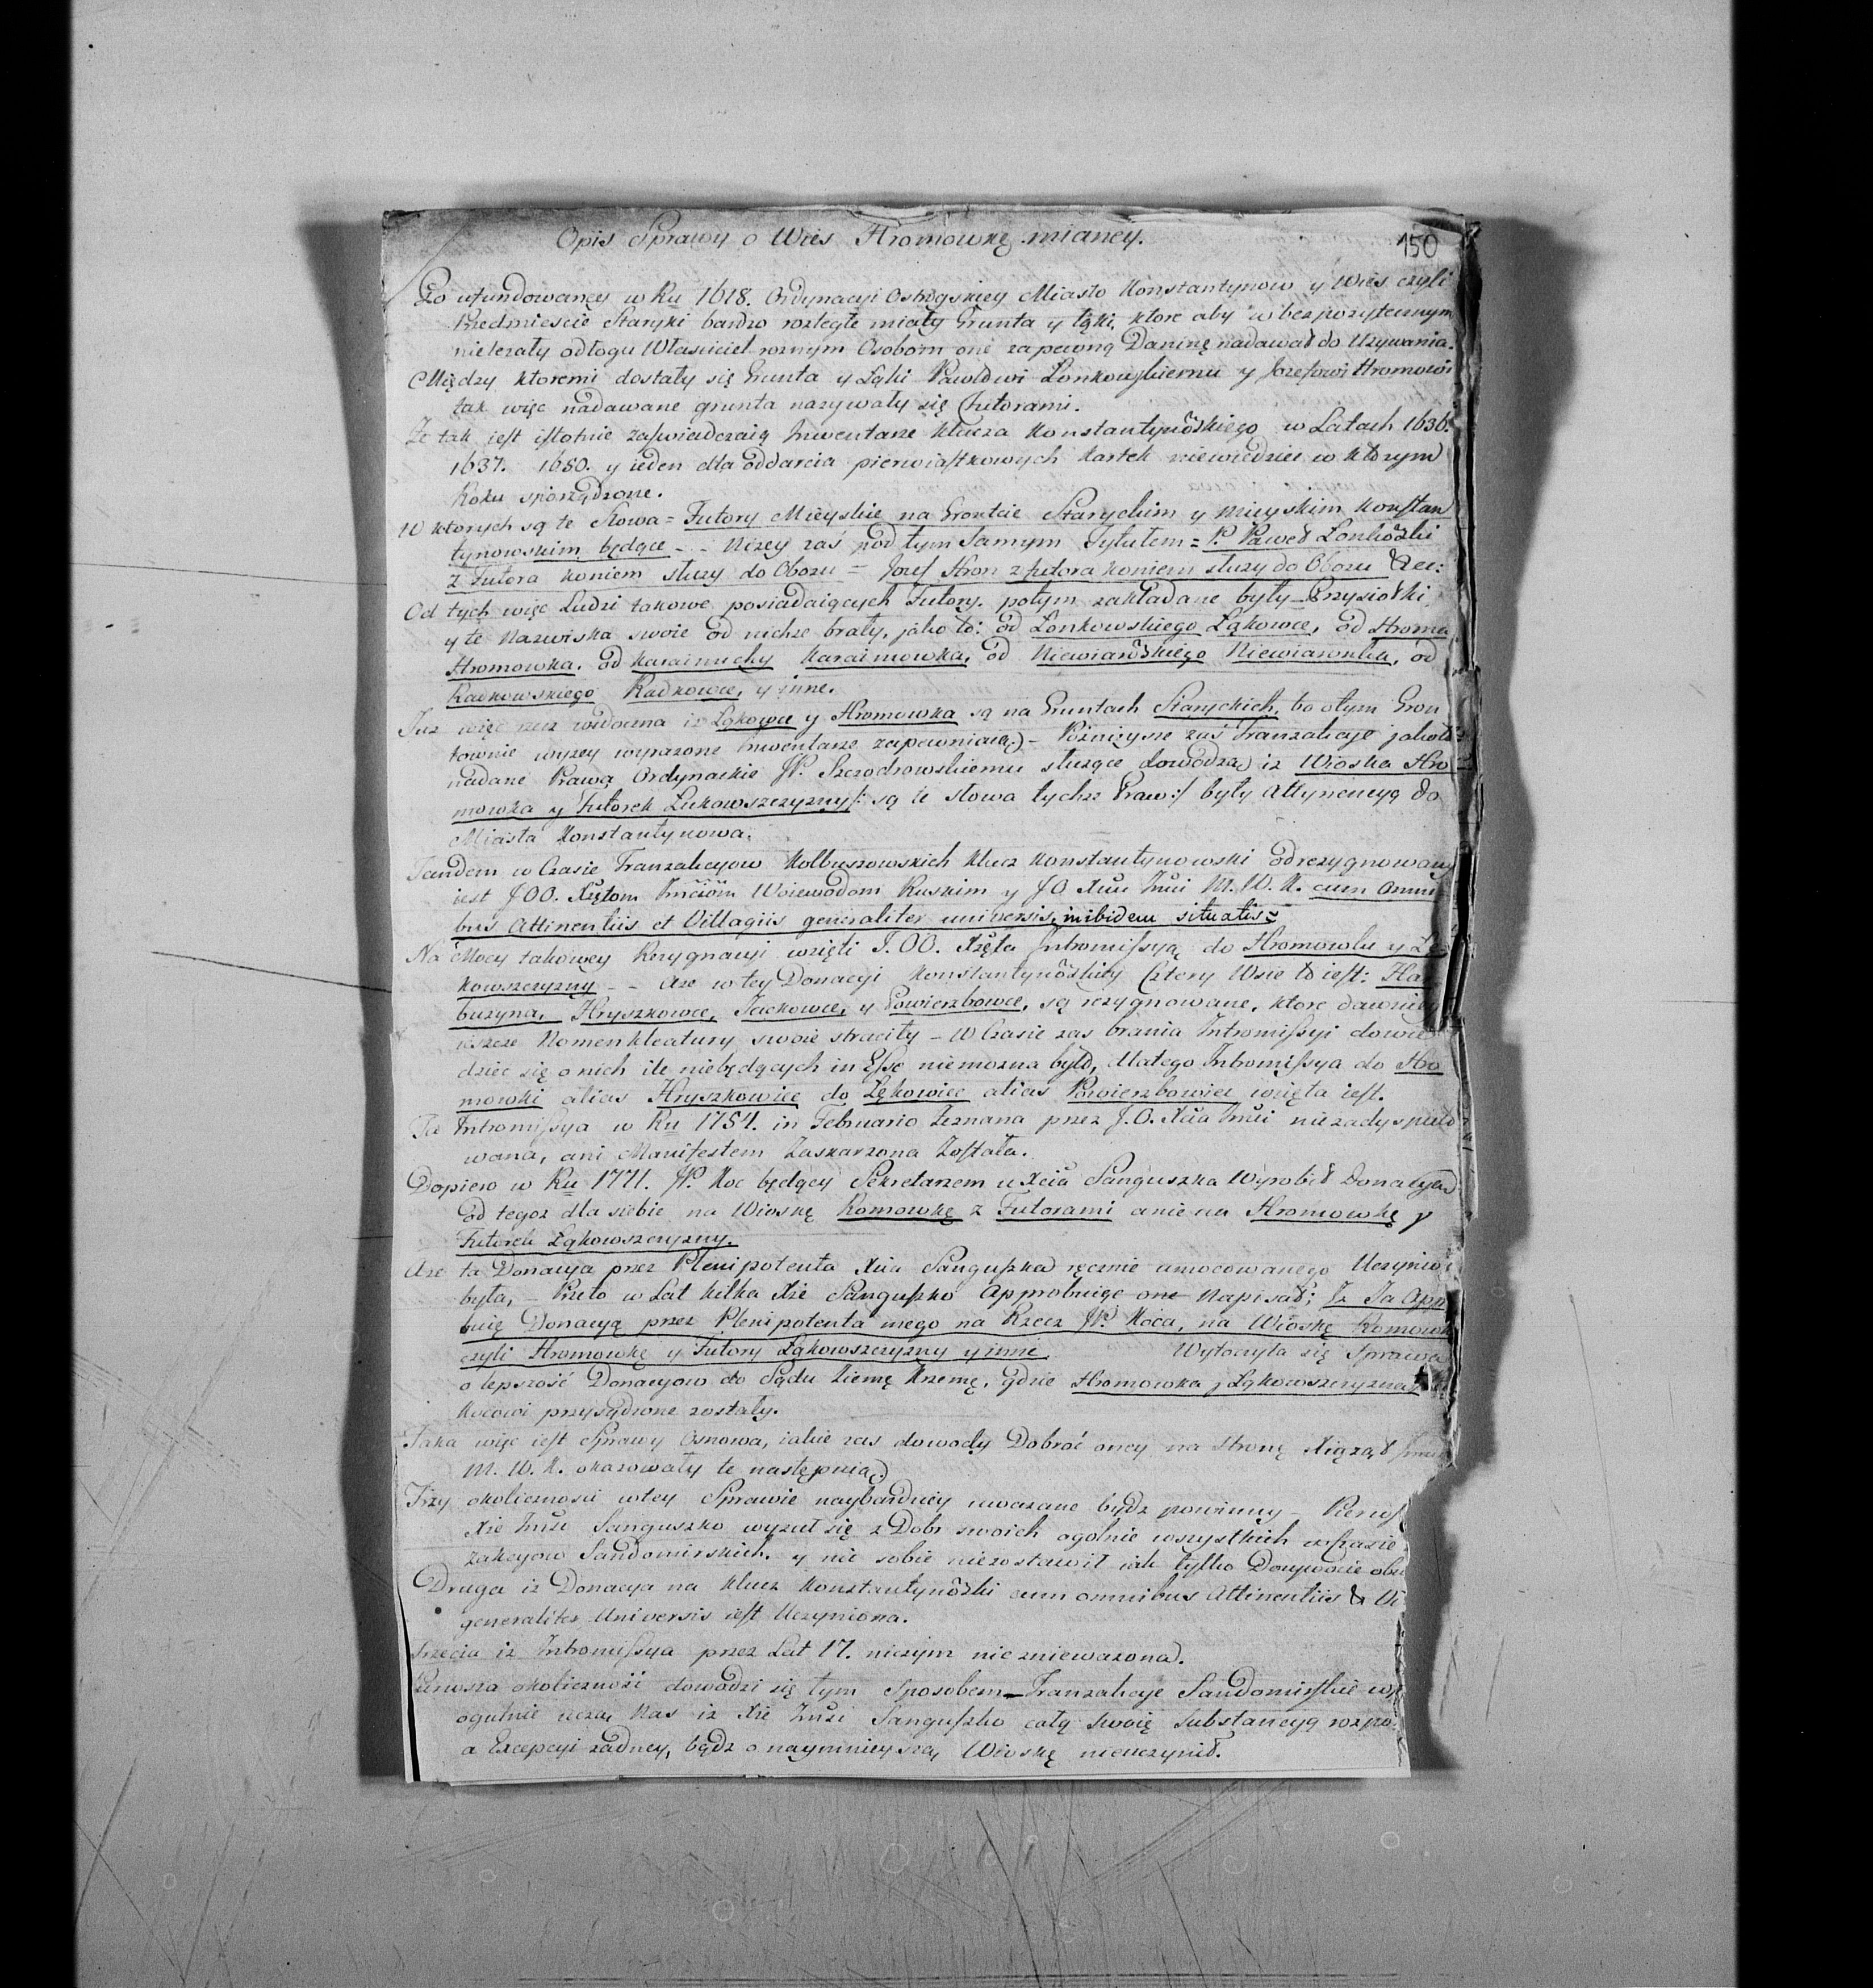 Opis Sprawy o Wies Hromowkę mianey.
150
Po ufundowaney w Ru 1618. Ordynacyi Ostrogskiey Miasto Konstantynow y Wies czyli
Przedmiescie Staryki bardzo rozległe miały Grunta y łąki, ktore aby w bezpozytecznym
nielezały odłogu Własciciel roznym Osobom one zapewną Daninę nadawał do Uzywania.
Między ktoremi dostały się Grunta y Łąki Pawłowi Lonkowskiemu y Jozefowi Hromowi
tak więc nadawane grunta nazywały się Futorami.
Ze tak iest istotnie zaswiadczaią Inwentarze Klucza Konstantynowskiego w Latach 1636.
1637. 1680. y ieden dla oddarcia pierwiastkowych Kartek niewiedziec w ktorym
Roku sporządzone.
W ktorych są te Słowa = Futory Mieyskie na Gruncie Staryckim y mieyskim Konstan
tynowskim będące - - Nizey zaś pod tym samym Tytułem = P. Paweł Lonkowski
z Futora koniem słuzy do Obozu = Jozef Hron z futora koniem słuzy do Obozu &cc:
Od tych więc Ludzi takowe posiadaiących Futory, potym zakładane były Przysiołki
y te Nazwiska swoie od nichze brały, jako to: od Lonkowskiego Łąkowce, od Hroma
Hromowka, od Karaimuchy Karaimowka, od Niewiarowskiego Niewiarowka, od
Radkowskiego Radkowce, y inne.
Juz więc rzecz widoczna iz Łąkowce y Hromowka są na Gruntach Staryckich, bo o tym Grun
townie wyzey wyrazone Inwentarze zapewniaią - Poznieysze zaś Tranzakcye jakoto
nadane Prawa Ordynackie JP. Szczodrowskiemu słuzące dowodzą iz Wioska Hro
mowka y Futorek Łukowszczyzny /: są te słowa tychze Praw :/ były Attynencyą do
Miasta Konstantynowa.
Tandem w Czasie Tranzakcyow Kolbuszowskich Klucz Konstantynowski odrezygnowany
iest JOO. Xiętom Imciom Woiewodom Ruskim y JO Xciu Imci M. W. K. cum omni
bus Attinentiis et Villagiis generaliter universis, inibidem situatis =
Na Mocy takowey Rezygnacyi wzięli J.OO. Xięta Intromissyą do Hromowki y Łą
kowszczyzny - - Aze w tey Donacyi Konstantynowskiey Cztery Wsie to iest: Har
buzyna, Hryszkowce, Jackowce, y Powierzbowce, są rezygnowane, ktore dawniey
ieszcze Nomenkleatury swoie straciły - W Czasie zas brania Intromissyi dowie
dziec się o nich ile niebędących in Esse niemozna było, dlatego Intromissya do Hro
mowki alias Hryszkowiec do Łękowiec alias Powierzbowiec wzięta iest.
Ta Intromissya w Ru 1754. in Februario Zeznana przez J.O. Xcia Imci niezadysputo
wana, ani Manifestem Zaskarzona Została.
Dopiero w Ru 1771. JP. Koc będący Sekretarzem u Xcia Sanguszka Wyrobił Donacyą
od tegoz dla siebie na Wioskę Romowkę z Futorami anie na Hromowkę y
Futorek Łąkowszczyzny.
Aze ta Donacya przez Plenipotenta Xcia Sanguszka ręcznie umocowanego Uczynio
była, - Przeto w Lat kilka Xże Sanguszko Approbuiąc one Napisał; Iz Ja App
buię Donacyą przez Plenipotenta mego na Rzecz JP. Koca, na Wioskę Romowk
czyli Hromowkę y Futory Łąkowszczyzny y inne. Wytoczyła się Sprawa
o lepszość Donacyow do Sądu Ziemę Krzemę, gdzie Hromowka y Łąkowszczyzna
Kocowi przysądzone zostały.
Taka więc iest Sprawy Osnowa, iakie zas dowody Dobroć oney na Stronę Xiążąt
M. W. K. okazowały te następuią.
Trzy okolicznosci w tey Sprawie naybardziey uwazane bydz powinny - Pierws
Xże Imci Sanguszko wyzuł się z Dobr swoich ogolnie wszystkich w Czasie
zakcyow Sandomirskich, y nic sobie niezostawił iak tylko Dozywocie
Druga iz Donacya na Klucz Konstantynowski cum omnibus Attinentiis & Vi
generaliter Universis iest Uczyniona.
Trzecia iz Intromissya przez Lat 17. niczym nie zniewazona.
Pierwsza okoliczność dowodzi się tym Sposobem - Tranzakcye Sandomirskie
ogulnie uczą Nas iz Xże Imci Sanguszko całą swoię Substancyą
a Excepcyi zadney, bądz o naymnieyszą Wioskę nieuczynił.